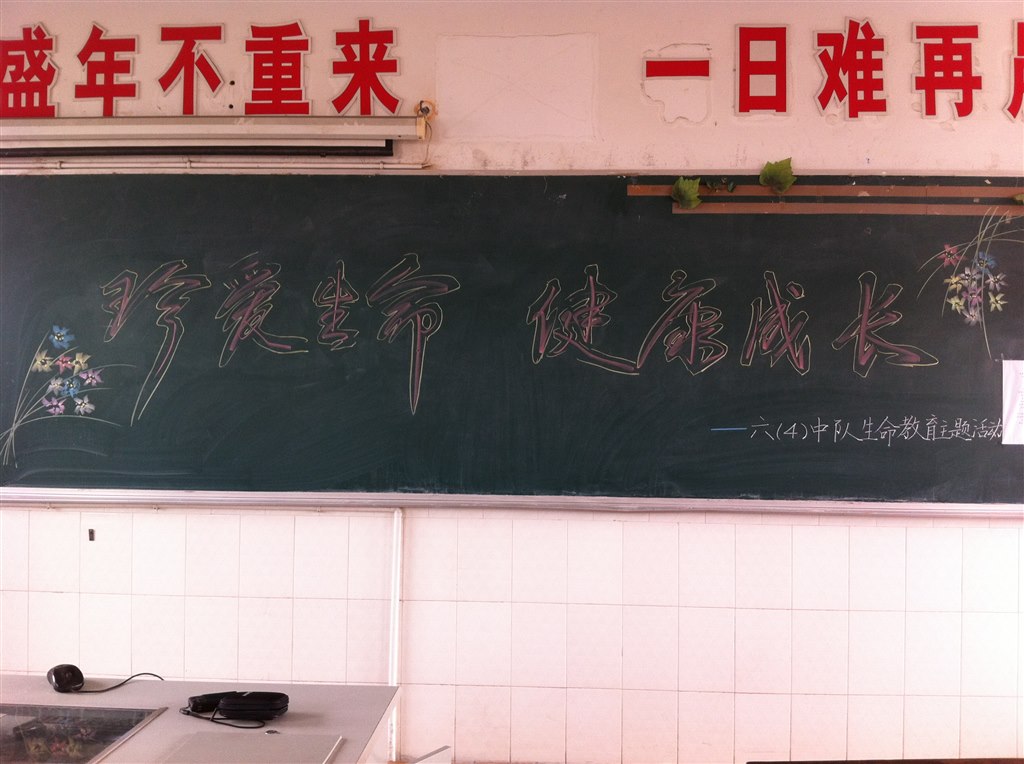 盛年不重来 一日难再
珍爱生命 健康成长
—六(4)中队生命教育主题活动